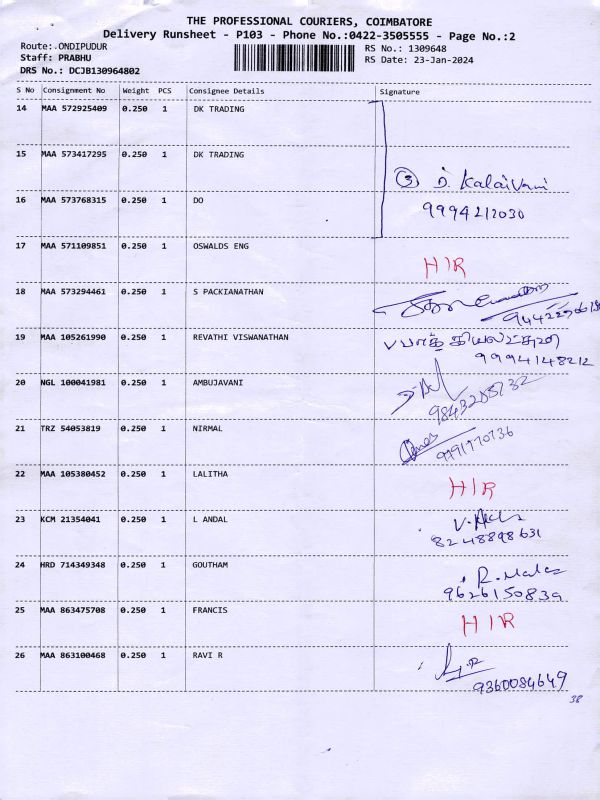 THE PROFESSIONAL COURIERS, COIMBATORE
Delivery Runsheet - P103 - Phone No.:0422-3505555 - Page No.:2
Route: ONDIPUDUR RS No.: 1309648
Staff: PRABHU RS Date: 23-Jan-2024
DRS No.: DCJB130964802
S No Consignment No Weight PCS Consignee Details Signature
14 MAA 572925409 0.250 1 DK TRADING
15 MAA 573417295 0.250 1 DK TRADING
③ D. Kalaivani
16 MAA 573768315 0.250 1 DO
9994212030
17 MAA 571109851 0.250 1 OSWALDS ENG
HIR
18 MAA 573294461 0.250 1 S PACKIANATHAN
19 MAA 105261990 0.250 1 REVATHI VISWANATHAN
9994148212
20 NGL 100041981 0.250 1 AMBUJAVANI
9843208732
21 TRZ 54053819 0.250 1 NIRMAL
22 MAA 105380452 0.250 1 LALITHA
HIR
23 KCM 21354041 0.250 1 L ANDAL
8248898631
24 HRD 714349348 0.250 1 GOUTHAM
R. Mala
9626150839
25 MAA 863475708 0.250 1 FRANCIS
HIR
26 MAA 863100468 0.250 1 RAVI R
9360084649
38